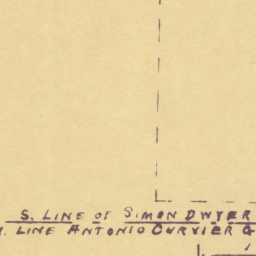 S. LINE OF SIMON DWYER
. LINE ANTONIO CURVIER G